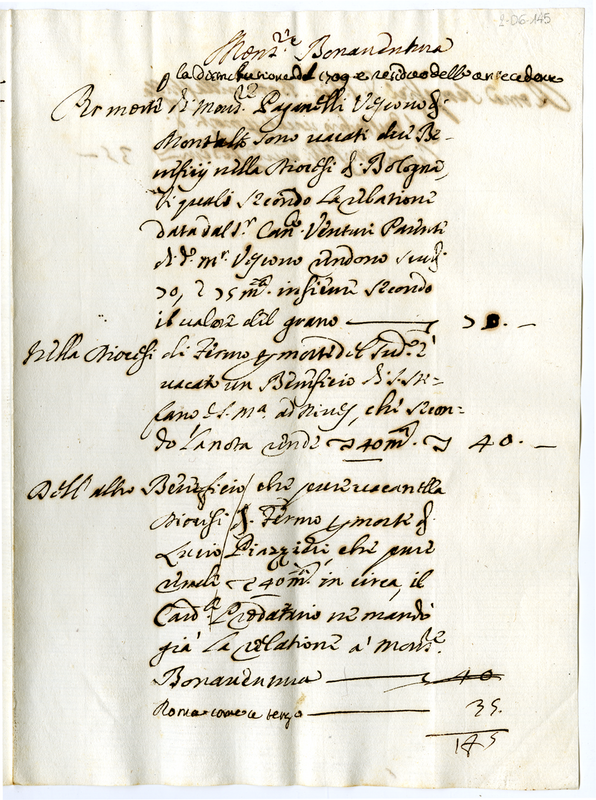 2-D6-145
Mons.re Bonaventura
p la distribuzione del 1709 e residuo dello antecedente
Per morte di Mons.re Paganelli Vescovo di
Montalto sono vacati due Be-
neficij nella Diocesi di Bologna,
li quali secondo la relatione
data dal S.r Can.co Venturi Parente
di d.o m.r Vescovo rendono scudi
70, ò 75 m.ta insieme secondo
il valore del grano 70. —
Nella Diocesi di Fermo p morte del Sud.o è
vacato un Beneficio di S. Ste-
fano e S. M.a ad Nives, che secon-
do la nota rende 40 m.ta 40. —
Dell'altro Beneficio che pure vacan ella
Diocesi di Fermo p morte di
Lucio Piazzieri, che pure
rende 40 m.ta in circa, il
Card.le Prodatario ne mandò
già la relatione a mons.re
Bonaventura 40
Roma come a tergo 35.
145